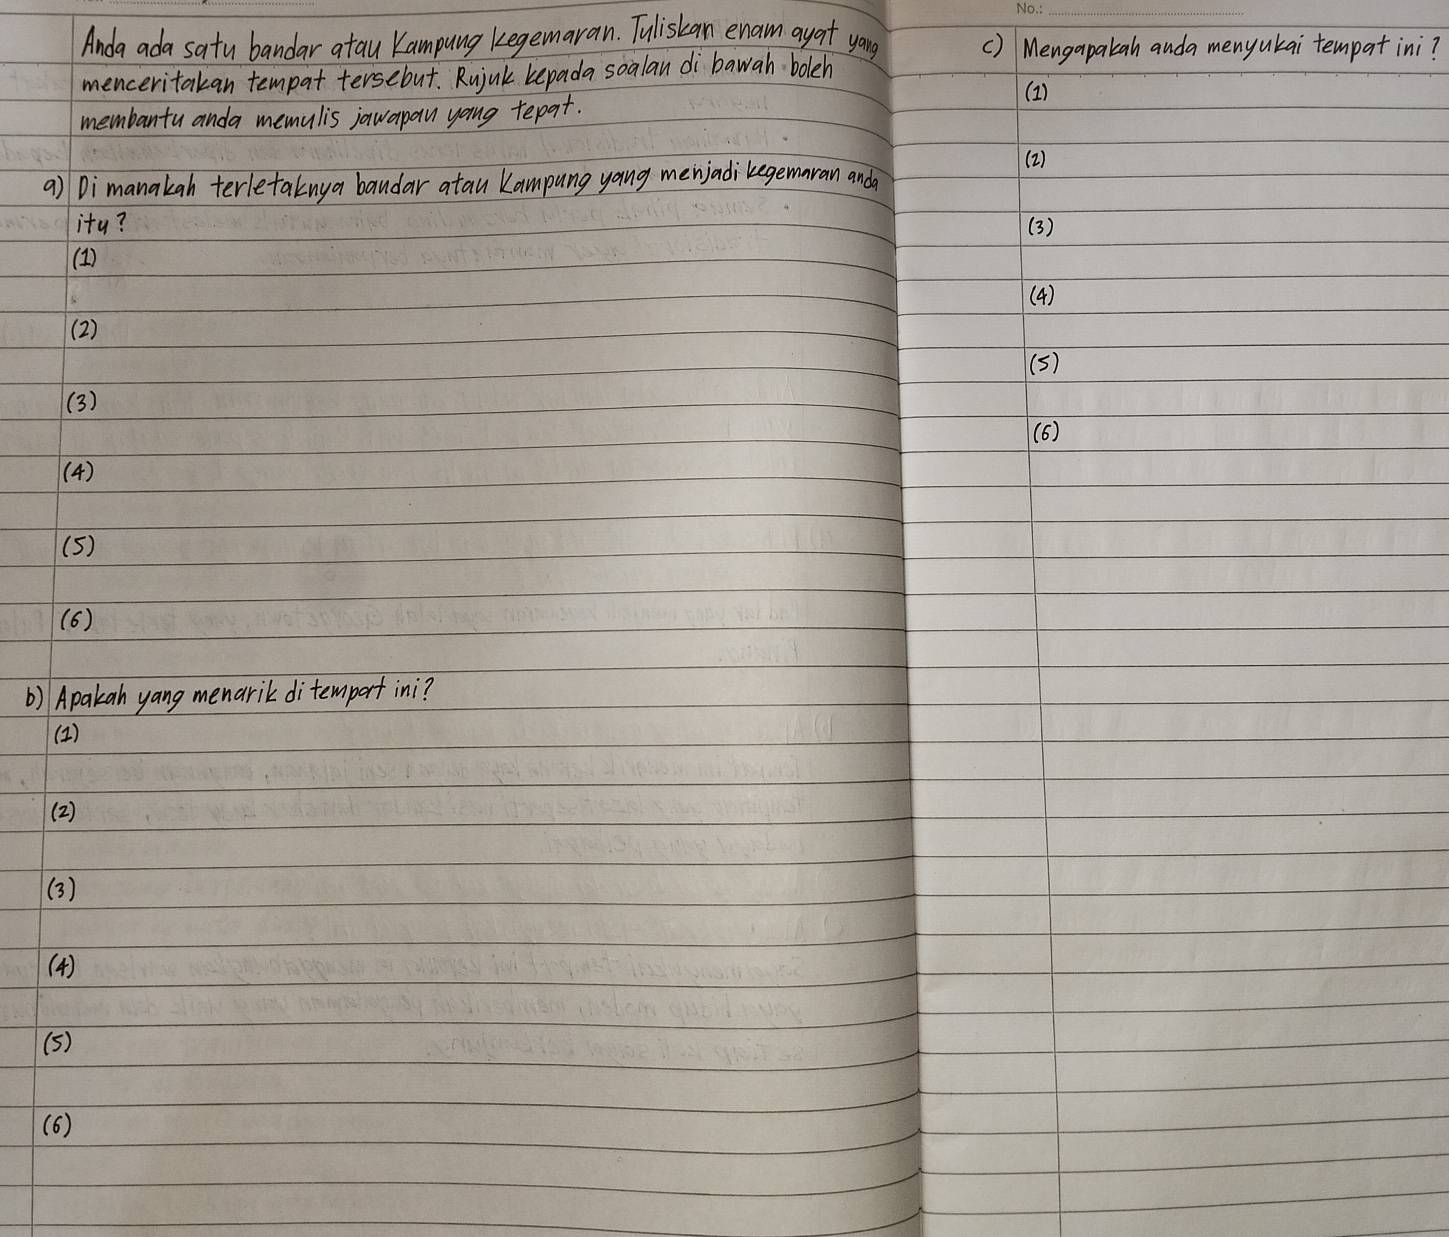 Anda ada satu bandar atau kampung kegemaran. Tuliskan enam ayat yang
menceritakan tempat tersebut. Rujuk kepada soalan di bawah boleh
membantu anda memulis jawapan yang tepat.
a) Di manakah terletaknya bandar atau kampung yang menjadi kegemaran anda
itu?
(1)
(2)
(3)
(4)
(5)
(6)
b) Apakah yang menarik di tempat ini?
(1)
(2)
(3)
(4)
(5)
(6)
No.:
c) Mengapakah anda menyukai tempat ini?
(1)
(2)
(3)
(4)
(5)
(6)